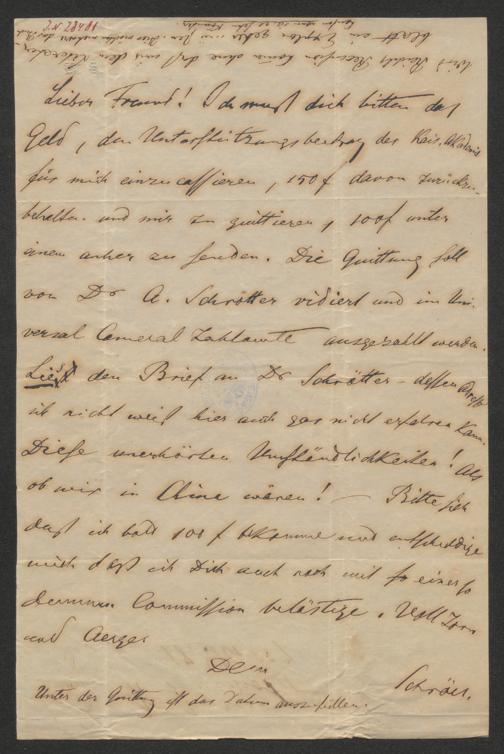 I.N. 78401
Lieber Freund! Ich muß dich bitten das
Geld, den Unterstützungsbeitrag der Kais. Akademie
für mich einzucassieren, 150 f davon zurückzu-
behalten und mir zu quittieren, 100 f unter
einem anher zu senden. Die Quittung soll
von Dr A. Schrötter vidiert und im Uni-
versal Cameral Zahlamte ausgezahlt werden.
Ließ den Brief an Dr Schrötter – dessen Adresse
ich nicht weiß hier auch gar nicht erfahren kann.
Diese unerhörten Umständlichkeiten! Als
ob wir in China wären! – Bitte sieh
daß ich bald 100 f bekomme und entschuldige
mich daß ich Dich auch noch mit so einer so
dummen Commission belästige. Voll Zorn
und Aerger
Dein
Schröer.
Unter der Quittung ist das Datum auszufüllen.